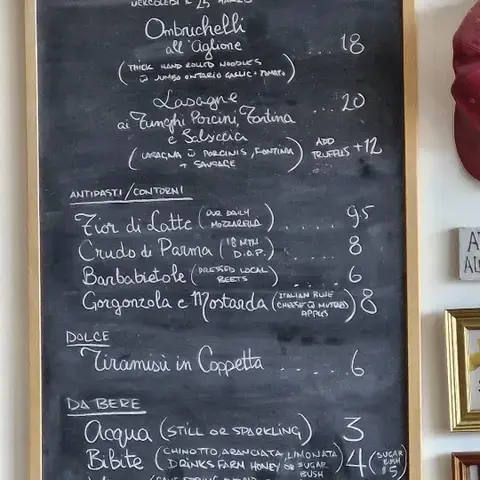 MERCOLEDI IL 25
Ombrichelli
all'Aglione ... 18
(THICK HAND ROLLED NOODLES
W JUMBO ONTARIO GARLIC + TOMATO)
Lasagne ... 20
ai Funghi Porcini, Fontina
e Salsiccia
(LASAGNA W PORCINIS, FONTINA
+ SAUSAGE) ADD
TRUFFLES +12
ANTIPASTI/CONTORNI
Fior di Latte (OUR DAILY
MOZZARELLA) ..... 9.5
Crudo di Parma (18 MTH
D.O.P.) ..... 8
Barbabietole (DRESSED LOCAL
BEETS) ..... 6
Gorgonzola e Mostarda (ITALIAN BLUE
CHEESE W MUSTARD
APPLES) 8
DOLCE
Tiramisù in Coppetta ..... 6
DA BERE
Acqua (STILL OR SPARKLING) 3
Bibite (CHINOTTO, ARANCIATA, LIMONATA
DRINKS FARM HONEY OR SUGAR
BUSH) 4 (SUGAR
BUSH
$5)
A
AL